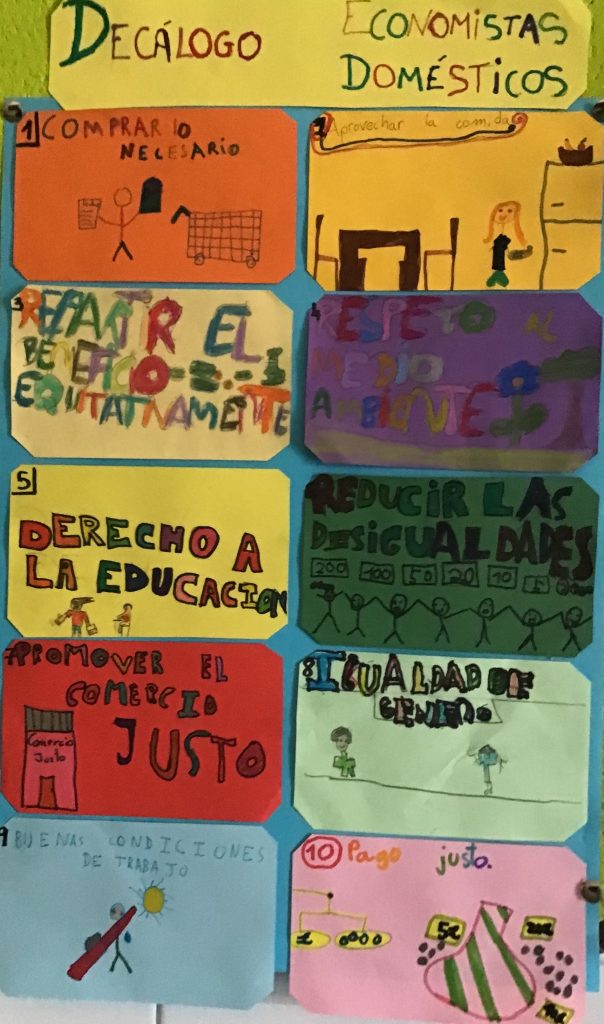 DECÁLOGO
ECONOMISTAS
DOMÉSTICOS
1 COMPRAR lO
NECESARIO
2 Aprovechar la comida
3 REPARTIR EL
BENEFICIO
EQUITATIVAMENTE
4 RESPETO AL
MEDIO
AMBIENTE
5
DERECHO A
LA EDUCACION
REDUCIR LAS
DESIGUALDADES
200 100 50 20 10 5
7 PROMOVER EL
COMERCIO
JUSTO
Comercio
Justo
8 IGUALDAD DE
GENERO
9 BUENAS CONDICIONES
DE TRABAJO
10 Pago justo.
5€